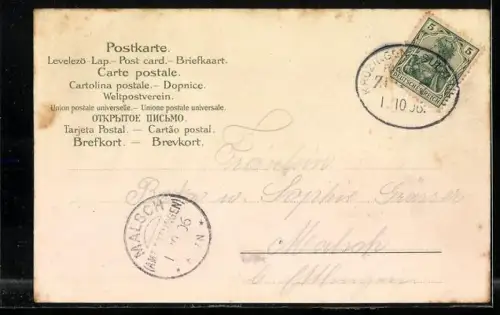 Postkarte.
Levelező-Lap.– Post card.– Briefkaart.
Carte postale.
Cartolina postale.– Dopnice.
Weltpostverein.
Union postale universelle.– Unione postale universale.
ОТКРЫТОЕ ПИСЬМО.
Tarjeta Postal.– Cartão postal.
Brefkort.– Brevkort.
5 5
DEUTSCHES REICH
1.10.06.
Fräulein
Sophie
Malsch
MALSCH
1 10 06